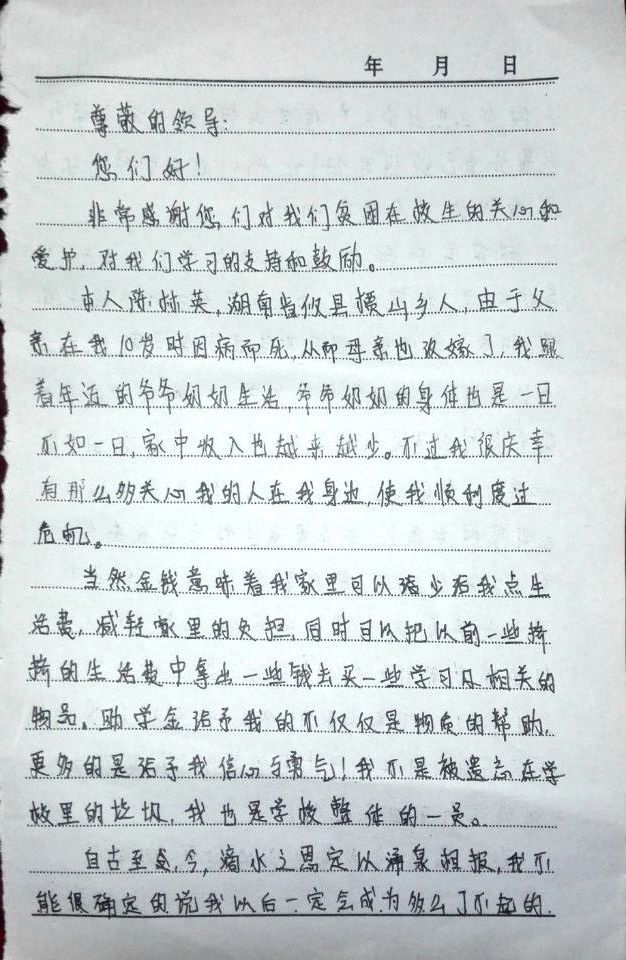 年 月 日
尊敬的领导:
您们好!
非常感谢您们对我们贫困在校生的关心和
爱护,对我们学习的支持和鼓励。
本人陈林英,湖南省攸县横山乡人,由于父
亲在我10岁时因病而死,从而母亲也改嫁了,我跟
着年迈的爷爷奶奶生活,爷爷奶奶的身体也是一日
不如一日,家中收入也越来越少。不过我很庆幸
有那么多关心我的人在我身边,使我顺利度过
危机。
当然金钱意味着我家里可以给少给我点生
活费,减轻家里的负担,同时可以把以前一些挤
挤的生活费中拿出一些钱去买一些学习及相关的
物品。助学金给予我的不仅仅是物质的帮助,
更多的是给予我信心与勇气!我不是被遗忘在学
校里的垃圾,我也是学校整体的一员。
自古至今,滴水之恩定以涌泉相报,我不
能很确定的说我以后一定会成为多么了不起的,